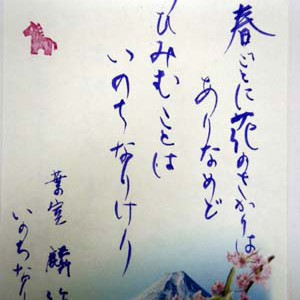 春ごとに花のさかりは
ありなめど
ひみむことは
いのちなりけり
葉室 麟
いのちなり